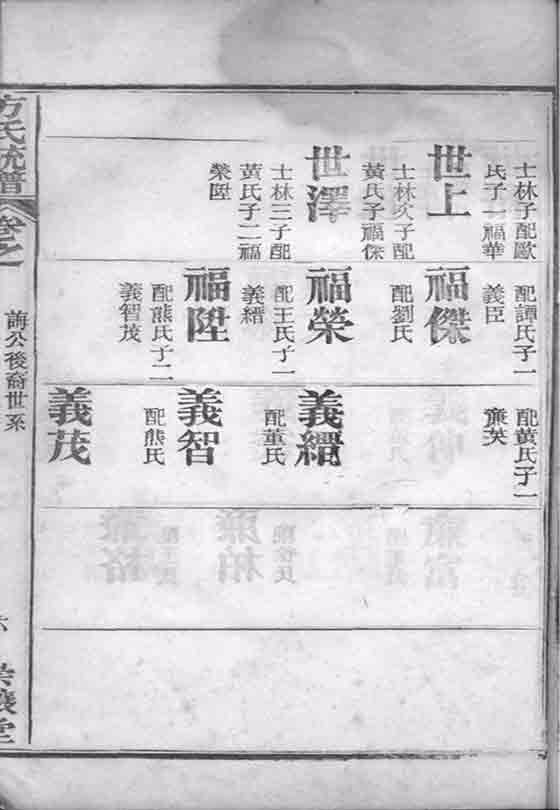 士林子配歐
氏子一福華
世上
士林次子配
黃氏子福傑
世澤
士林三子配
黃氏子二福
榮陞
配譚氏子一
義臣
福傑
配劉氏
福榮
配王氏子一
義縉
福陞
配熊氏子二
義智茂
配黃氏子一
廉英
義縉
配董氏
義智
配熊氏
義茂
方氏統譜
卷之一
詢公後裔世系
六